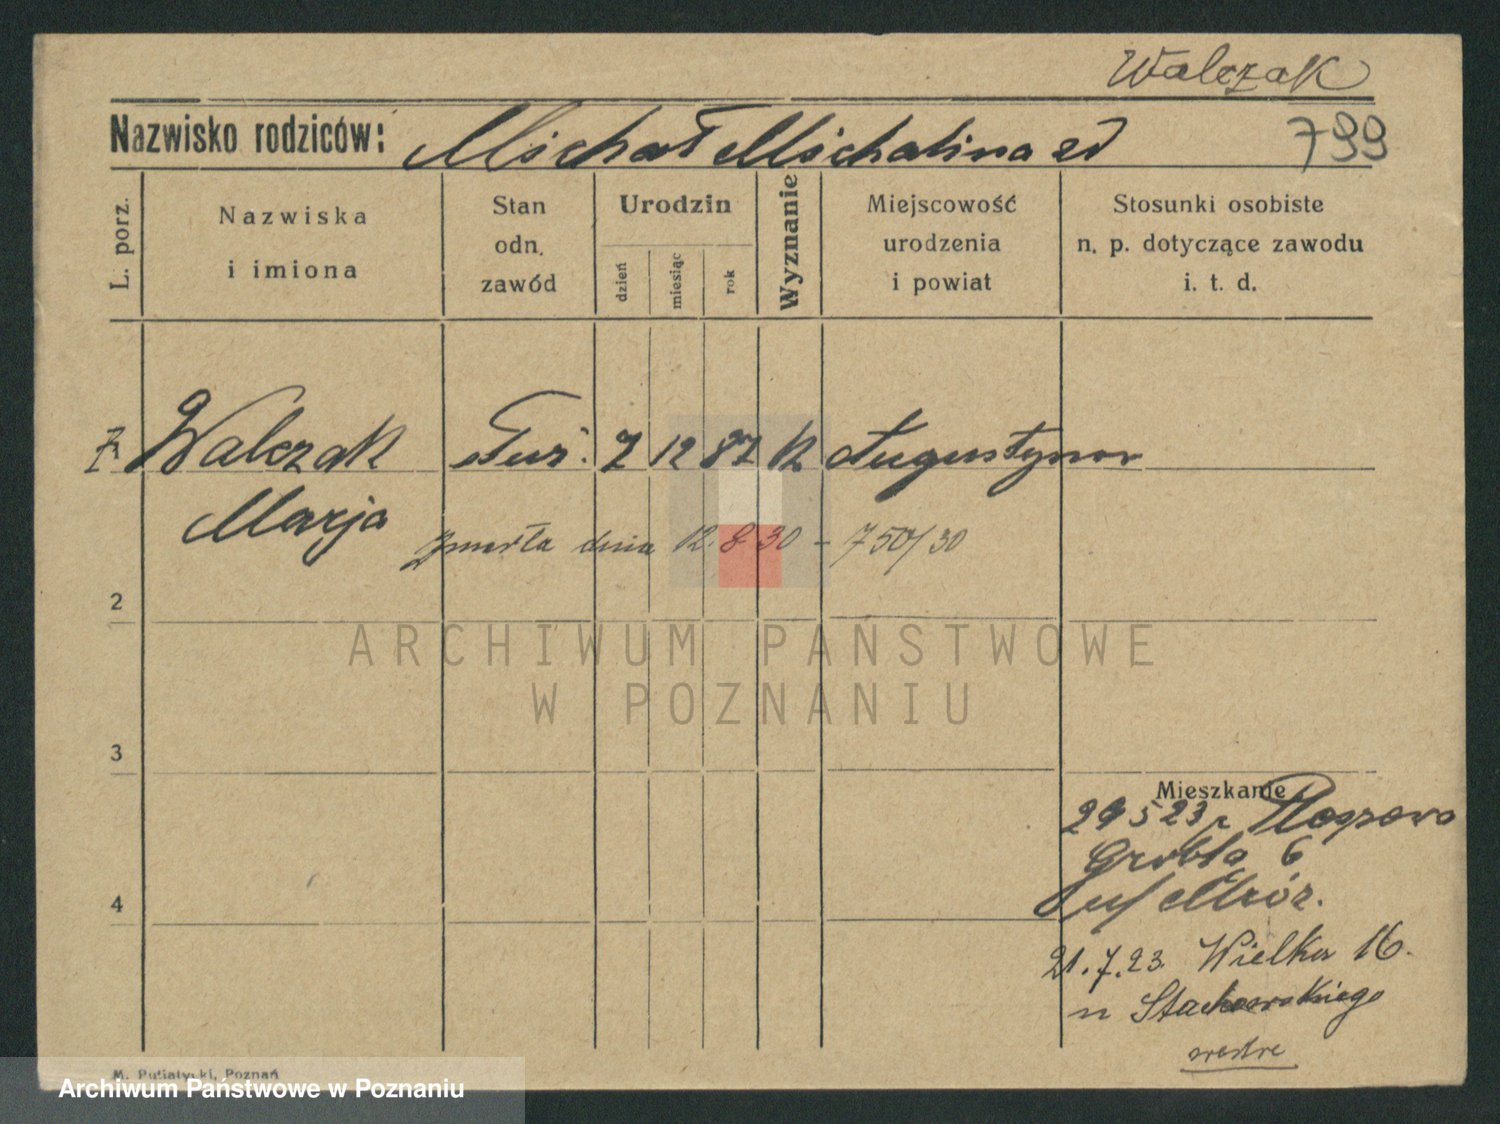 Walczak
Nazwisko rodziców: Michał Michalina zd
799
L. porz.
Nazwiska
i imiona
Stan
odn.
zawód
Urodzin
dzień
miesiąc
rok
Wyznanie
Miejscowość
urodzenia
i powiat
Stosunki osobiste
n. p. dotyczące zawodu
i. t. d.
Walczak 7 12 87 k Augustynow
Marja
zmarła dnia 12.8 30 - 750/30
2
3
4
Mieszkanie
29 5 23 z
Grobla 6
u/ Mróz.
21.7.23 Wielka 16.
u Stachowskiego
ARCHIWUM PAŃSTWOWE
W POZNANIU
M. Putiatycki, Poznań
Archiwum Państwowe w Poznaniu